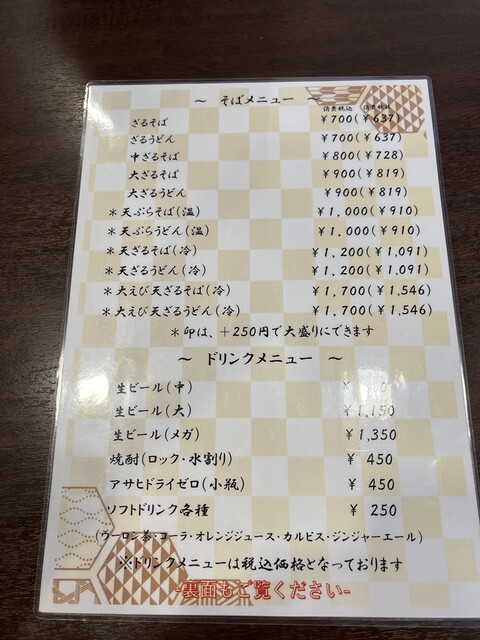 ～ そばメニュー ～
消費税込 消費税抜
ざるそば ￥700(￥637)
ざるうどん ￥700(￥637)
中ざるそば ￥800(￥728)
大ざるそば ￥900(￥819)
大ざるうどん ￥900(￥819)
＊天ぷらそば(温) ￥1,000(￥910)
＊天ぷらうどん(温) ￥1,000(￥910)
＊天ざるそば(冷) ￥1,200(￥1,091)
＊天ざるうどん(冷) ￥1,200(￥1,091)
＊大えび天ざるそば(冷) ￥1,700(￥1,546)
＊大えび天ざるうどん(冷) ￥1,700(￥1,546)
＊印は、＋250円で大盛りにできます
～ ドリンクメニュー ～
生ビール(中) ￥
生ビール(大) ￥1,150
生ビール(メガ) ￥1,350
焼酎(ロック・水割り) ￥ 450
アサヒドライゼロ(小瓶) ￥ 450
ソフトドリンク各種 ￥ 250
(ウーロン茶・コーラ・オレンジジュース・カルピス・ジンジャーエール)
※ドリンクメニューは税込価格となっております
-裏面もご覧ください-